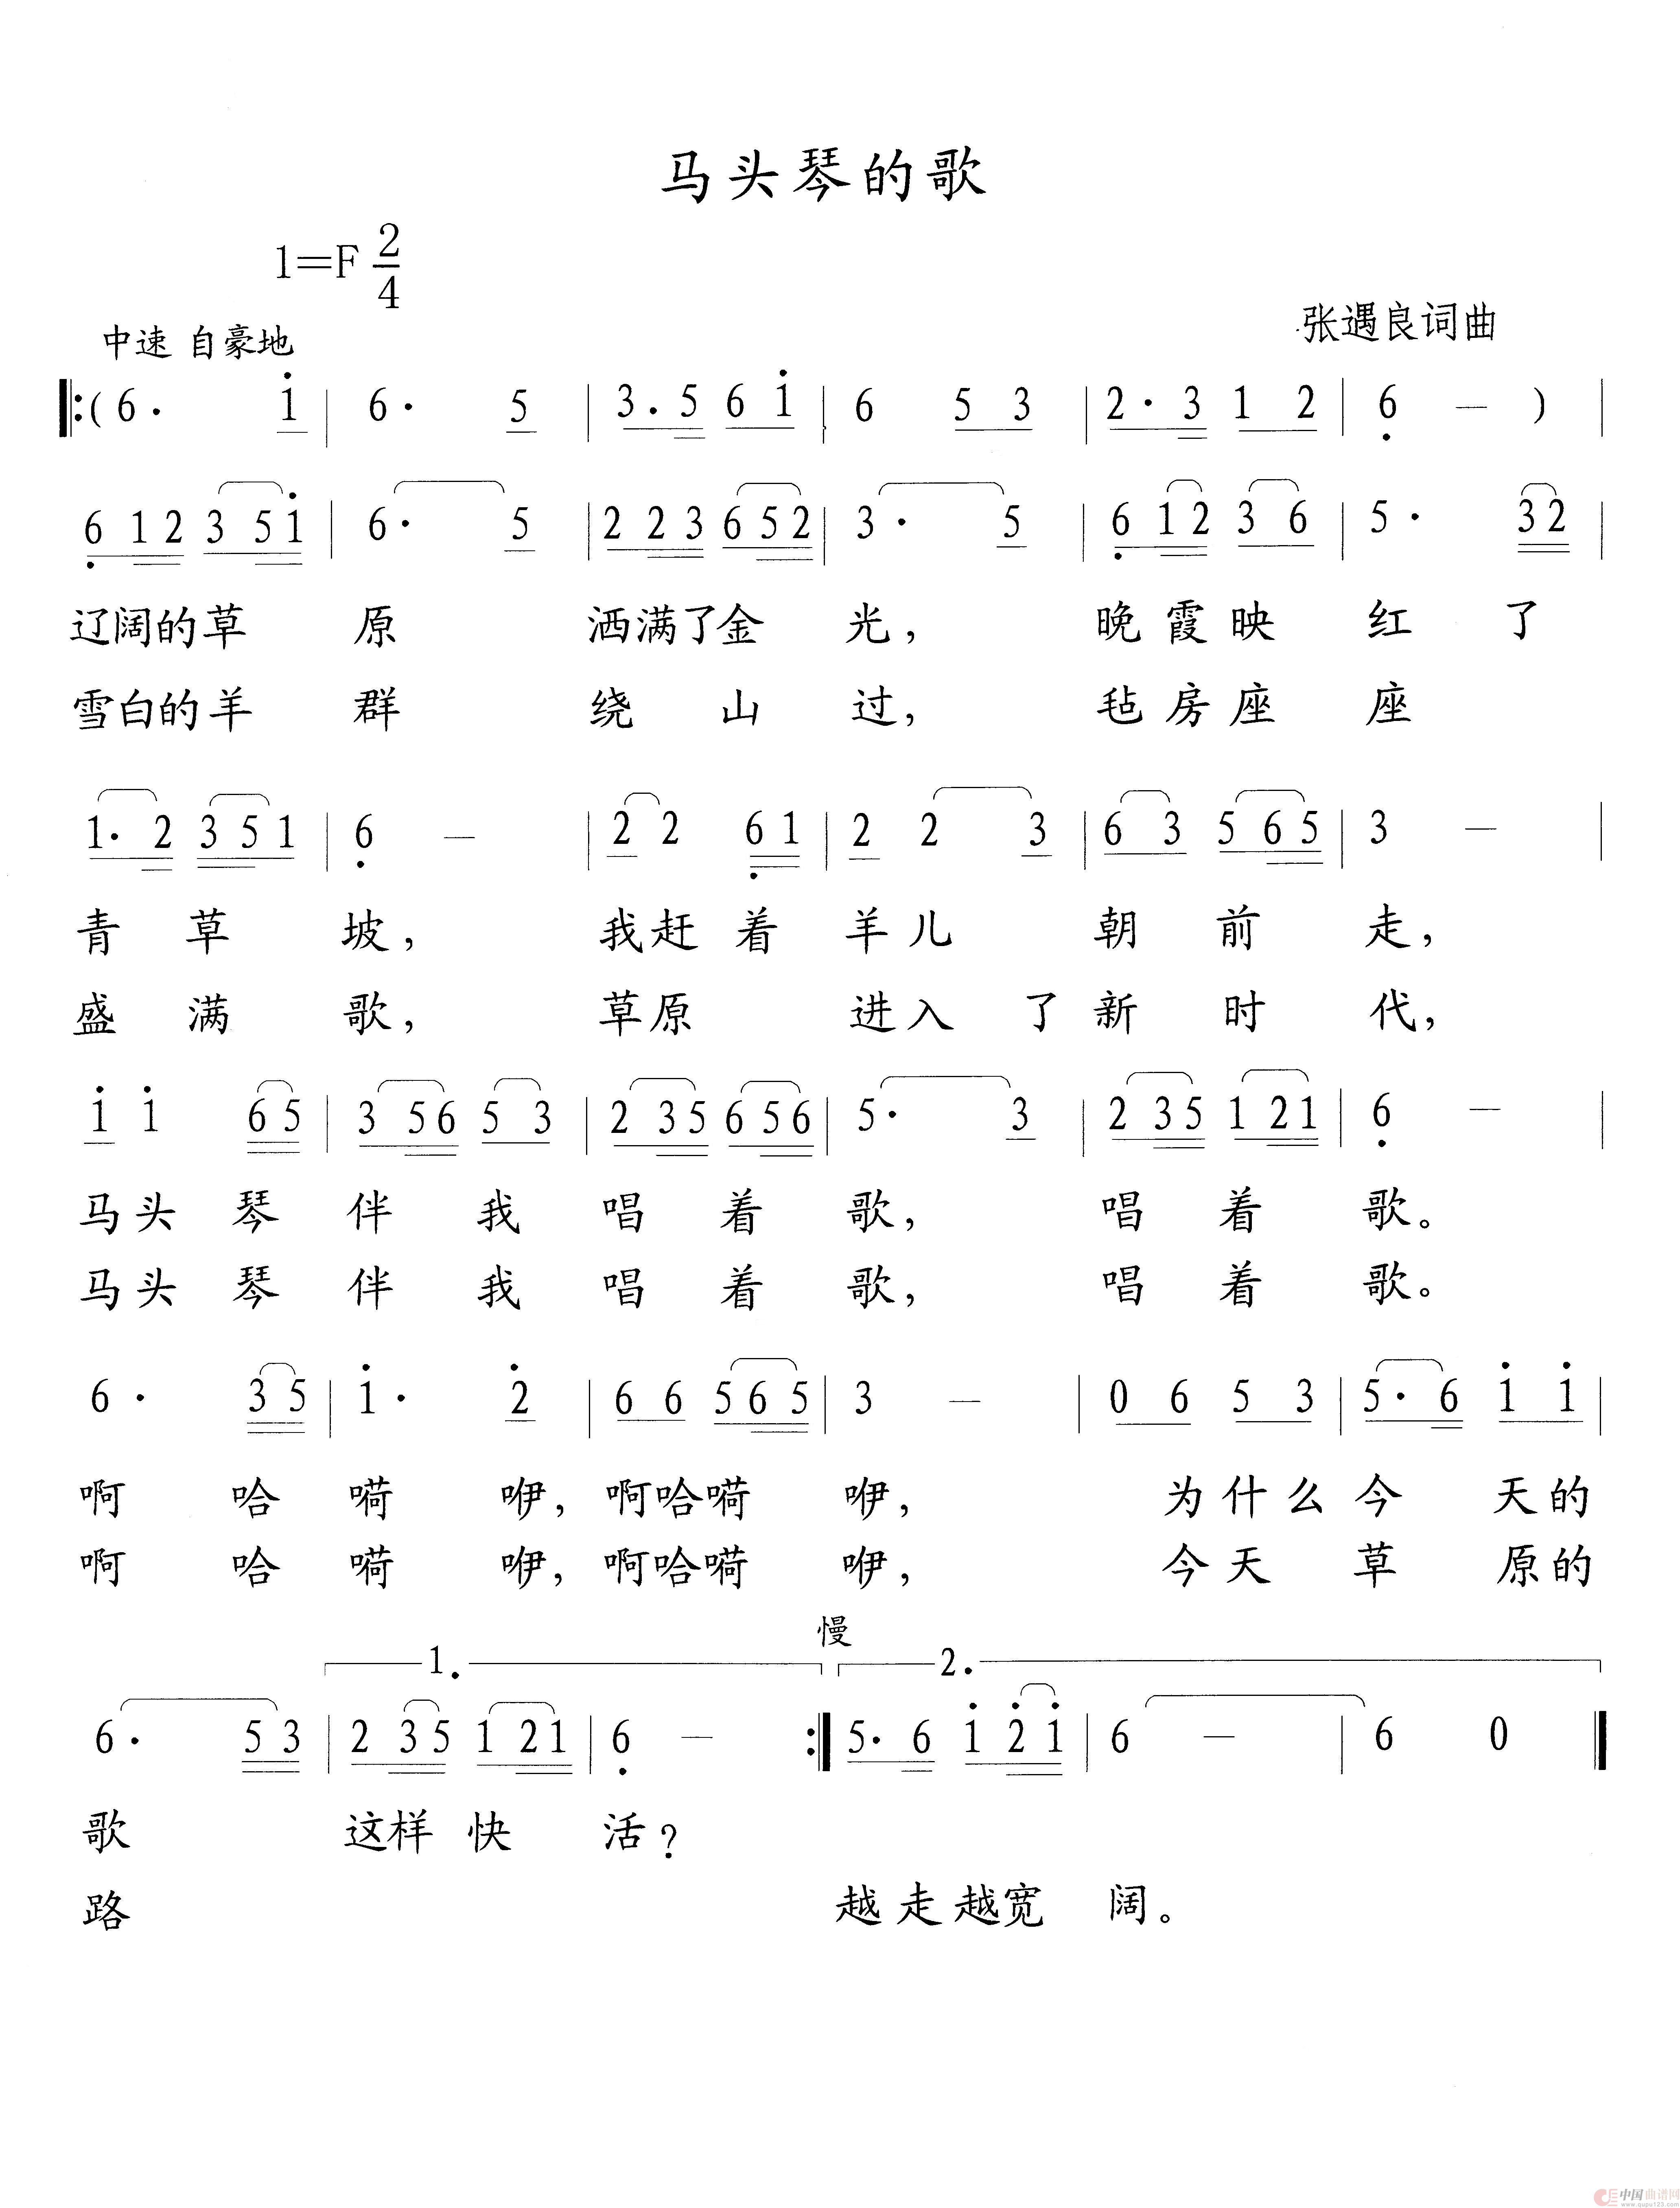 马头琴的歌
1=F 2/4
中速 自豪地
张遇良词曲
(6· i | 6· 5 | 3·5 6 i | 6 5 3 | 2·3 1 2 | 6 — ) |
6 12 3 5i | 6· 5 | 2 23 6 52 | 3· 5 | 6 12 3 6 | 5· 32 |
辽阔的草 原 洒满了金 光， 晚霞映 红 了
雪白的羊 群 绕 山 过， 毡房座 座
1· 2 351 | 6 — | 2 2 61 | 2 2 3 | 6 3 5 65 | 3 — |
青 草 坡， 我赶 着 羊儿 朝 前 走，
盛 满 歌， 草原 进入 了 新 时 代，
i i 65 | 3 56 5 3 | 2 35 6 56 | 5· 3 | 2 35 1 21 | 6 — |
马头 琴 伴 我 唱 着 歌， 唱 着 歌。
马头 琴 伴 我 唱 着 歌， 唱 着 歌。
6· 35 | i· 2 | 6 6 5 6 5 | 3 — | 0 6 5 3 | 5· 6 i i |
啊 哈 嗬 咿，啊哈嗬 咿， 为什么 今 天的
啊 哈 嗬 咿，啊哈嗬 咿， 今天 草 原的
慢
1. 2.
6· 53 | 2 35 1 21 | 6 — :| 5· 6 i 2i | 6 — | 6 0 |
歌 这样 快 活？
路 越走越宽 阔。
中国曲谱网
www.qupu123.com